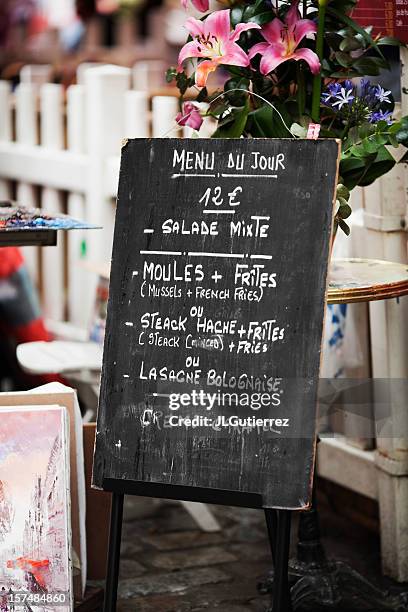 MENU DU JOUR
12€
- SALADE MIXTE
- MOULES + FRITES
(MUSSELS + FRENCH FRIES)
OU
- STEACK HACHE + FRITES
(STEACK (MINCED) + FRIES)
OU
- LASAGNE BOLOGNAISE
- CREME
Credit: JLGutierrez
157484860